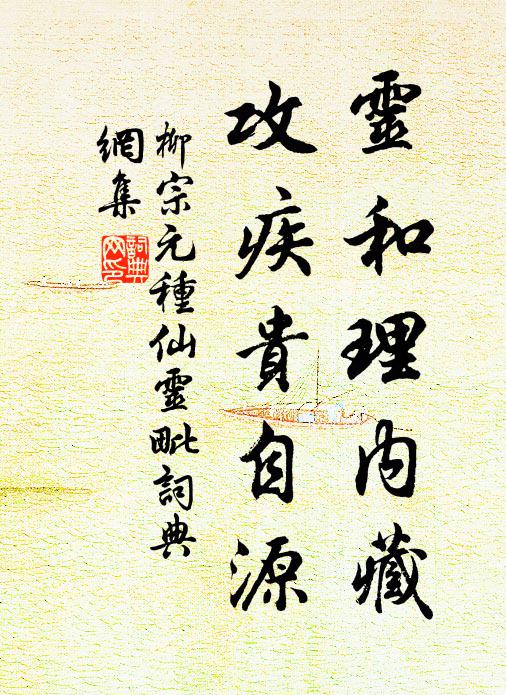 靈和理內藏
攻疾貴自源
柳宗元種仙靈毗詞典
網集
詞典
网印